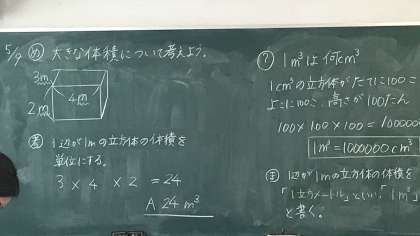 5/9 め 大きな体積について考えよう。
3m
4m
2m
考 1辺が1mの立方体の体積を
単位にする。
3 × 4 × 2 = 24
A 24 m³
? 1m³は何cm³
1cm³の立方体がたてに100こ
よこに100こ、高さが100だん
100×100×100=1000000
1m³=1000000cm³
ま 1辺が1mの立方体の体積を
「1立方メートル」といい、「1m³」
と書く。